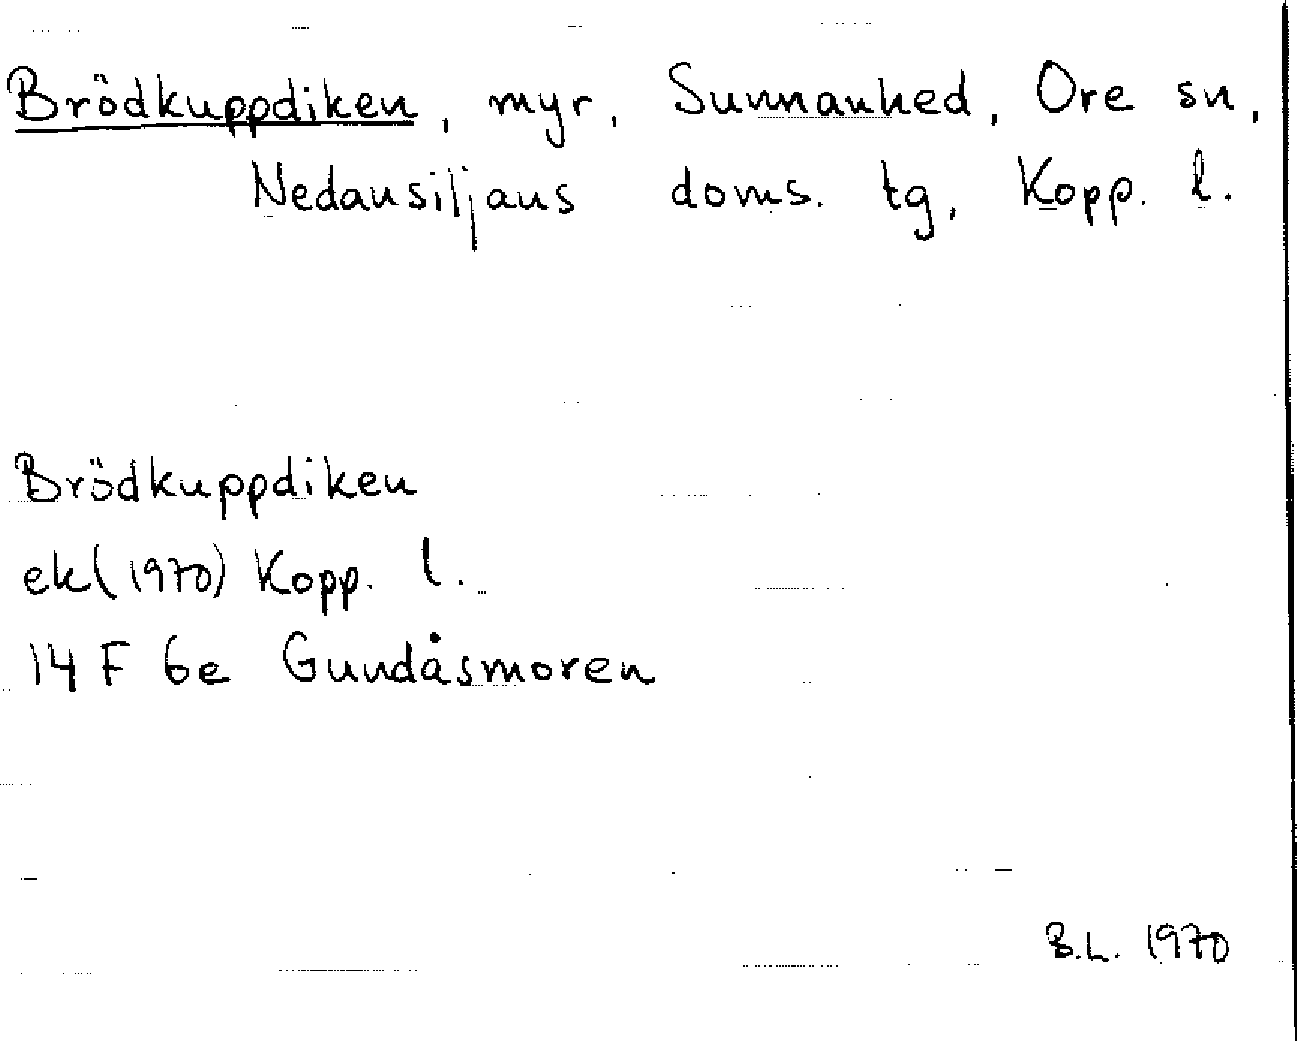 Brödkuppdiken, myr, Sunnanhed, Ore sn,
Nedansiljans doms. tg, Kopp. l.
Brödkuppdiken
ek (1970) Kopp. l.
14 F 6e Gundåsmoren
B.L. 1970